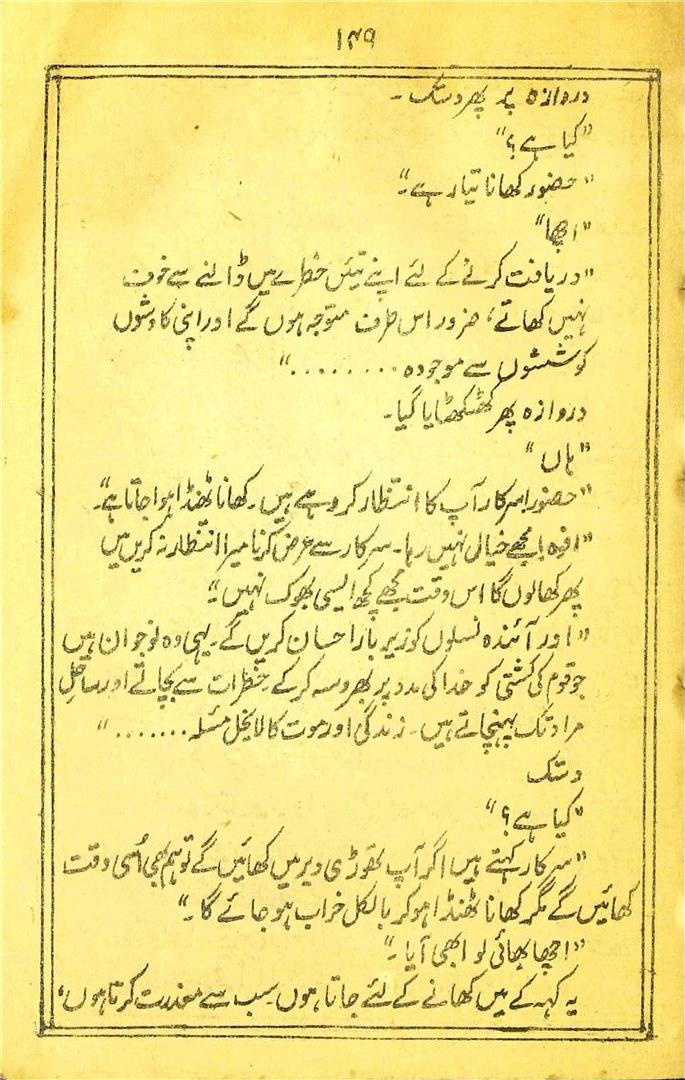 ۱۴۹
دروازہ پر پھر دستک۔
"کیا ہے؟"
"حضور کھانا تیار ہے۔"
"اچھا"
"دریافت کرنے کے لئے اپنے تئیں خطرے میں ڈالنے سے خوف
نہیں کھاتے، ضرور اس طرف متوجہ ہوں گے اور اپنی کاوشوں
کوششوں سے موجودہ ........."
دروازہ پھر کھٹکھٹایا گیا۔
"ہاں"
"حضور! سرکار آپ کا انتظار کر رہے ہیں۔ کھانا ٹھنڈا ہوا جاتا ہے۔"
"افوہ! مجھے خیال نہیں رہا۔ سرکار سے عرض کرنا میرا انتظار نہ کریں میں
پھر کھا لوں گا اس وقت مجھے کچھ ایسی بھوک نہیں۔"
"اور آئندہ نسلوں کو زیر بار احسان کریں گے۔ یہی وہ نوجوان ہیں
جو قوم کی کشتی کو خدا کی مدد پر بھروسہ کر کے خطرات سے بچاتے اور ساحلِ
مراد تک پہنچاتے ہیں۔ زندگی اور موت کا لاینحل مسئلہ ......."
دستک
"کیا ہے؟"
"سرکار کہتے ہیں اگر آپ تھوڑی دیر میں کھائیں گے تو ہم بھی اُسی وقت
کھائیں گے مگر کھانا ٹھنڈا ہو کر بالکل خراب ہو جائے گا۔"
"اچھا بھائی لو ابھی آیا۔"
یہ کہہ کے میں کھانے کے لئے جاتا ہوں۔ سب سے معذرت کرتا ہوں،